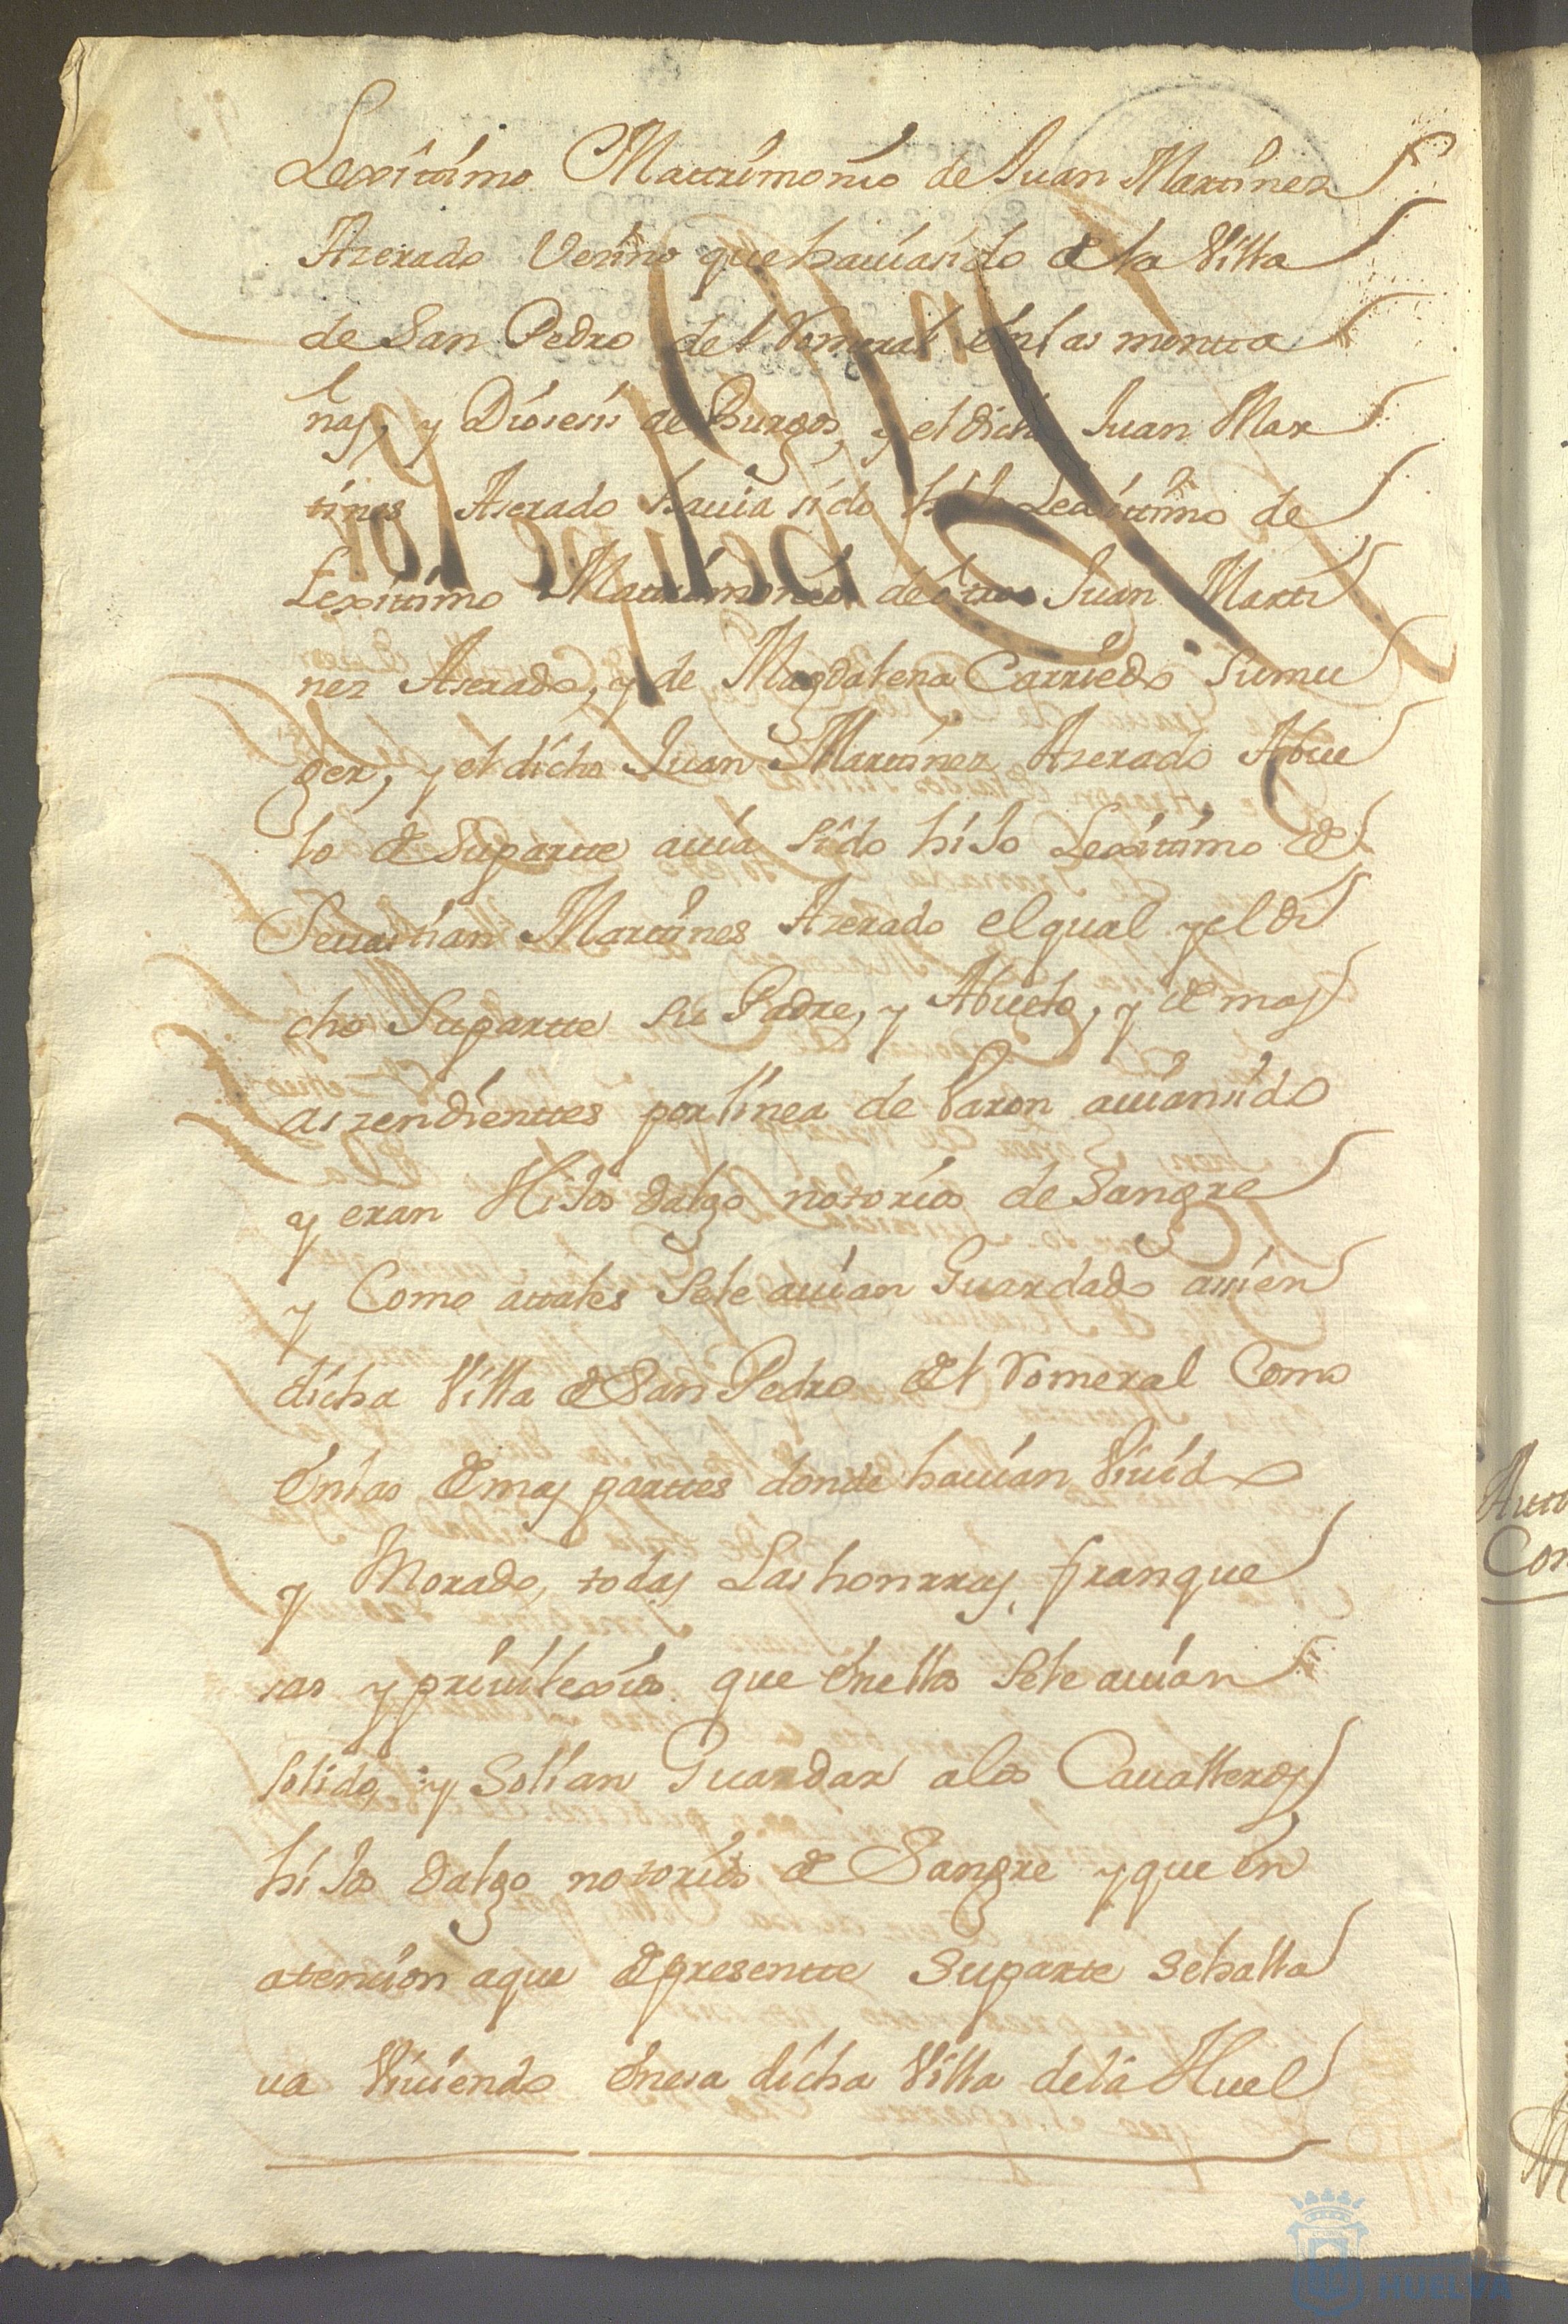 Lexittimo Mattrimonio de Juan Martinez
Azerado Vezino que hauia sido de la Villa
de San Pedro del Romeral en las montta
ñas, y Diosesis de Burgos, y el dicho Juan Mar
tines Aserado hauia sido hijo Lexittimo de
Lexittimo Mattrimonio de otro Juan Marti
nez Aserado, y de Magdalena Carriedo su mu
ger, y el dicho Juan Martinez Azerado Abue
lo de su partte auia sido hijo Lexittimo de
Seuastian Martines Azerado el qual y el di
cho su partte su Padre, y Abuelo, y demas
aszendienttes por linea de Varon auian sido
y eran Hijos dalgo notorios de Sangre
y Como attales se le auian Guardado assi en
dicha Villa de San Pedro del Romeral Como
en las demas parttes donde hauian Viuido
y Morado, todas Las honrras, franque
sas y priuilexios que en ellas se le auian
solido, y solian Guardar a los Caualleros
hijos dalgo notorios de Sangre y que en
atencion a que de presentte su parte se halla
ua Viuiendo en esa dicha Villa de la Huel
Autt
Con
HUELVA